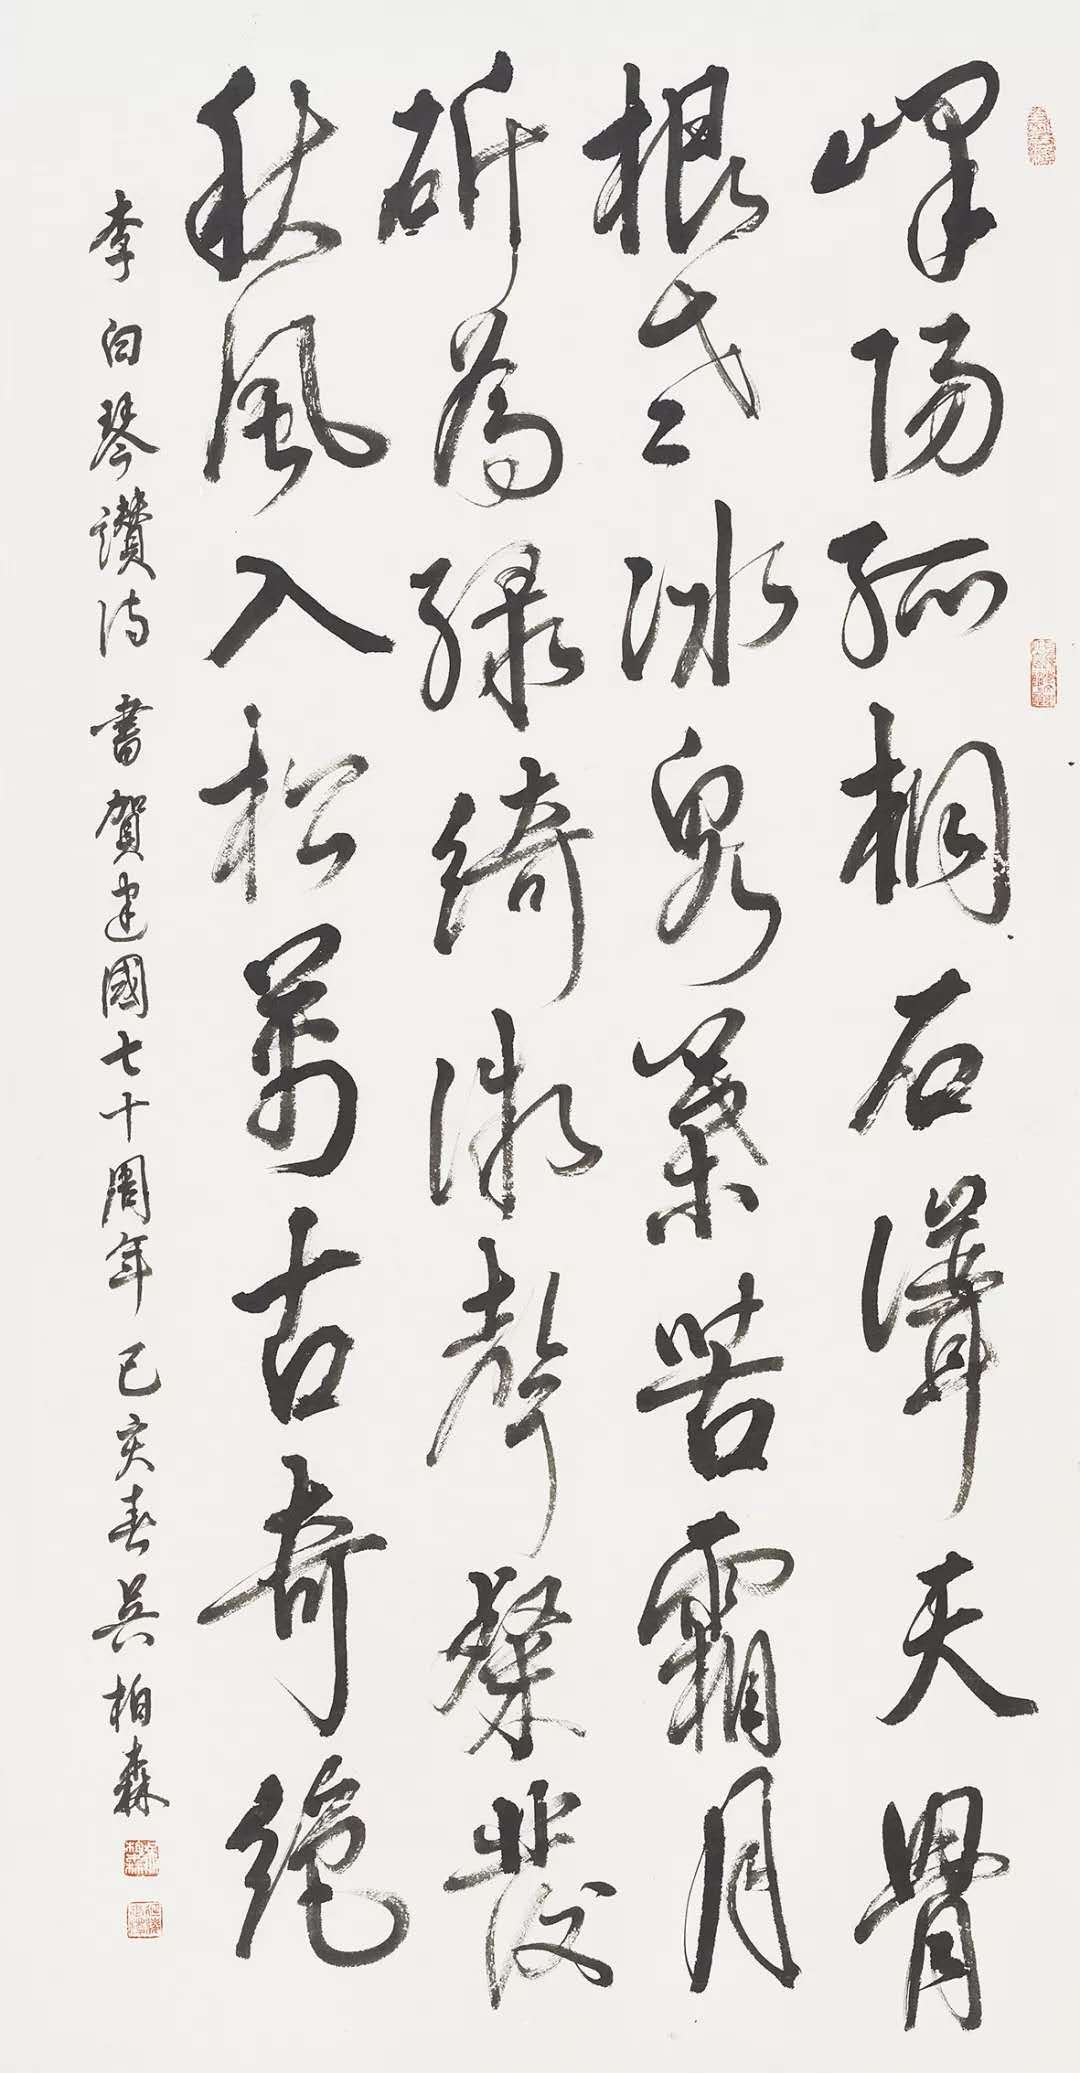 嶧陽孤桐石聳天骨
根老冰泉葉苦霜月
斫為綠綺徽聲粲發
秋風入松萬古奇絕
李白琴讚詩 書賀建國七十周年 己亥春吳柏森